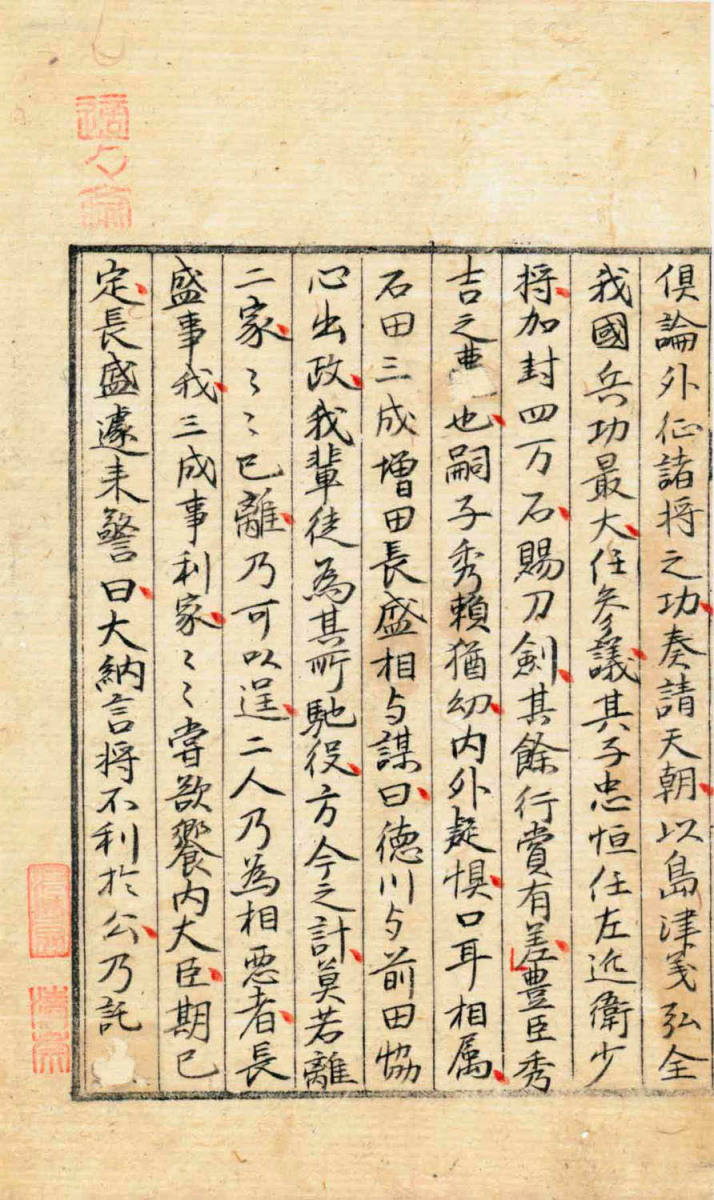 俱論外征諸将之功奏請天朝以島津義弘全
我國兵功最大任参議其子忠恒任左近衛少
将加封四万石賜刀劍其餘行賞有差豊臣秀
吉之也嗣子秀頼猶幼内外疑惧口耳相属
石田三成増田長盛相与謀曰徳川与前田恊
心出政我輩徒為其所馳役方今之計莫若離
二家〻〻已離乃可以逞二人乃為相悪者長
盛事我三成事利家〻〻嘗欲饗内大臣期已
定長盛遽来警曰大納言将不利於公乃託